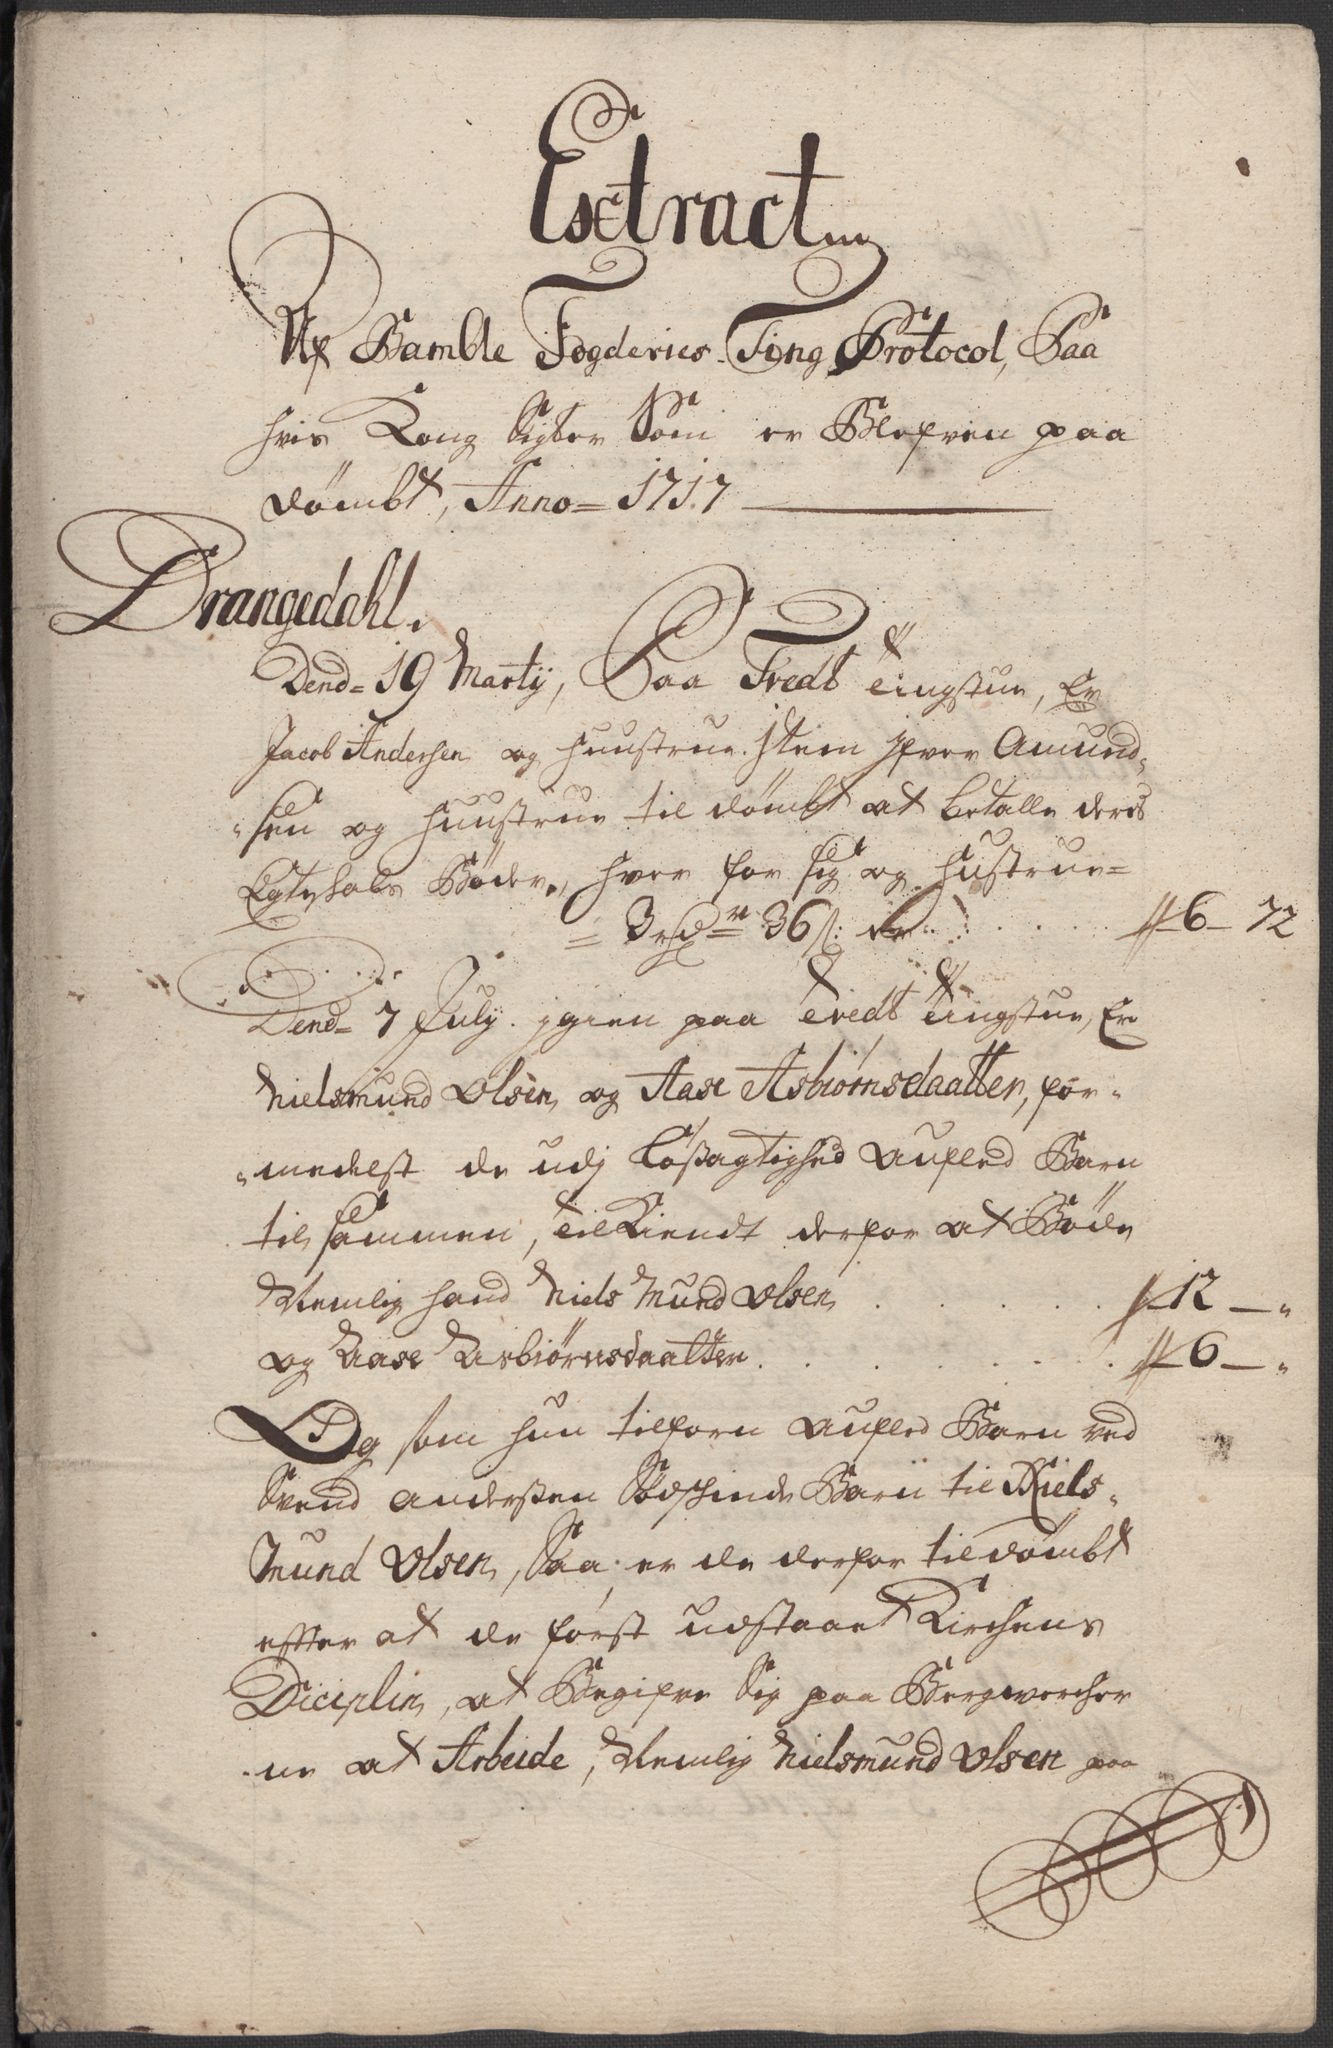 Extract
Af Bamble Fogderies Ting Protocol, Paa
hvis Kong Sigter Som er Blefven paa
dømbt, Anno = 1717
Drangedahl.
Dend = 19 Martij, Paa Tvedt Tingstue, Er
Jacob Andersen og Huustrue. Item Ifver Amund-
sen og Huustrue til dømbt at betalle deris
Egteskabs Bøder, hver for sig og Hustrue =
= 3 rdr 36 s: er . . . . 6 – 72
Dend = 7 July. igien paa Tvedt Tingstue, Er
Nielsmund Olsen og Aase Asbiørnsdaatter, for-
medelst de udj Løsagtighed aufled Barn
til sammen, Tilkiendt derfor at Bøde
Nemlig hand Niels Mund Olsen . . . . . 12 – "
og Aase Asbiørnsdaatter . . . . . . . 6 – "
Og som hun tilforn aufled Barn ved
Svend Anderßen Sødschinde Barn til Niels-
Mund Olsen, Saa er de derfor tildømbt
efter at de først udstaaet Kirchens
Diciplin, at Begifve Sig paa Bergvercher
ne at Arbeide, Nemlig Nielsmund Olsen paa